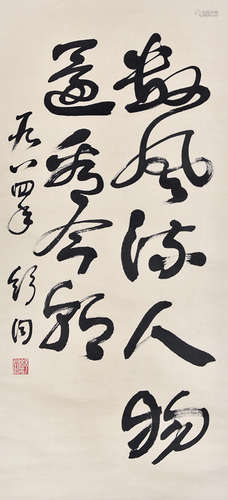 数风流人物
还看今朝
一九八四年
舒同